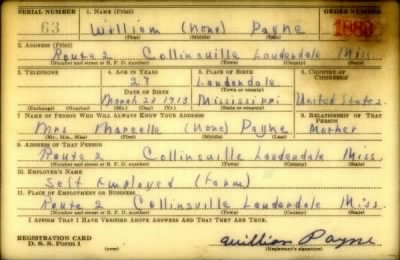 SERIAL NUMBER 1. NAME (Print) ORDER NUMBER
63 William (None) Payne 1883
(First) (Middle) (Last)
2. ADDRESS (Print)
Route 2 Collinsville Lauderdale Miss.
(Number and street or R. F. D. number) (Town) (County) (State)
3. TELEPHONE 4. AGE IN YEARS 5. PLACE OF BIRTH 6. COUNTRY OF CITIZENSHIP
27 Lauderdale
DATE OF BIRTH (Town or county)
March 21 1913 Mississippi United States
(Exchange) (Number) (Mo.) (Day) (Yr.) (State or country)
7. NAME OF PERSON WHO WILL ALWAYS KNOW YOUR ADDRESS 8. RELATIONSHIP OF THAT PERSON
Mrs. (None) Payne Mother
(Mr., Mrs., Miss) (First) (Middle) (Last)
9. ADDRESS OF THAT PERSON
Route 2 Collinsville Lauderdale Miss.
(Number and street or R. F. D. number) (Town) (County) (State)
10. EMPLOYER'S NAME
Self Employed (Farm)
11. PLACE OF EMPLOYMENT OR BUSINESS
Route 2 Collinsville Lauderdale Miss.
(Number and street or R. F. D. number) (Town) (County) (State)
I AFFIRM THAT I HAVE VERIFIED ABOVE ANSWERS AND THAT THEY ARE TRUE.
REGISTRATION CARD
D. S. S. Form 1
William Payne
(Registrant's signature)